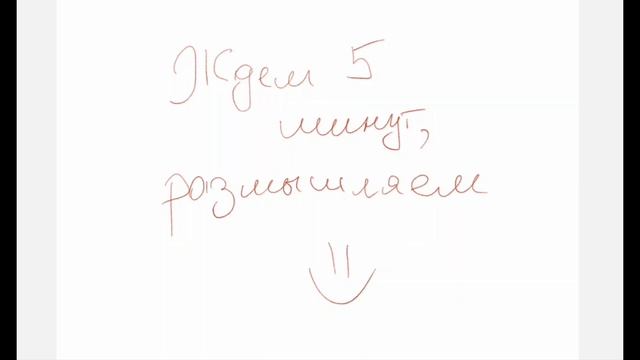 Ждем 5
минут,
размышляем